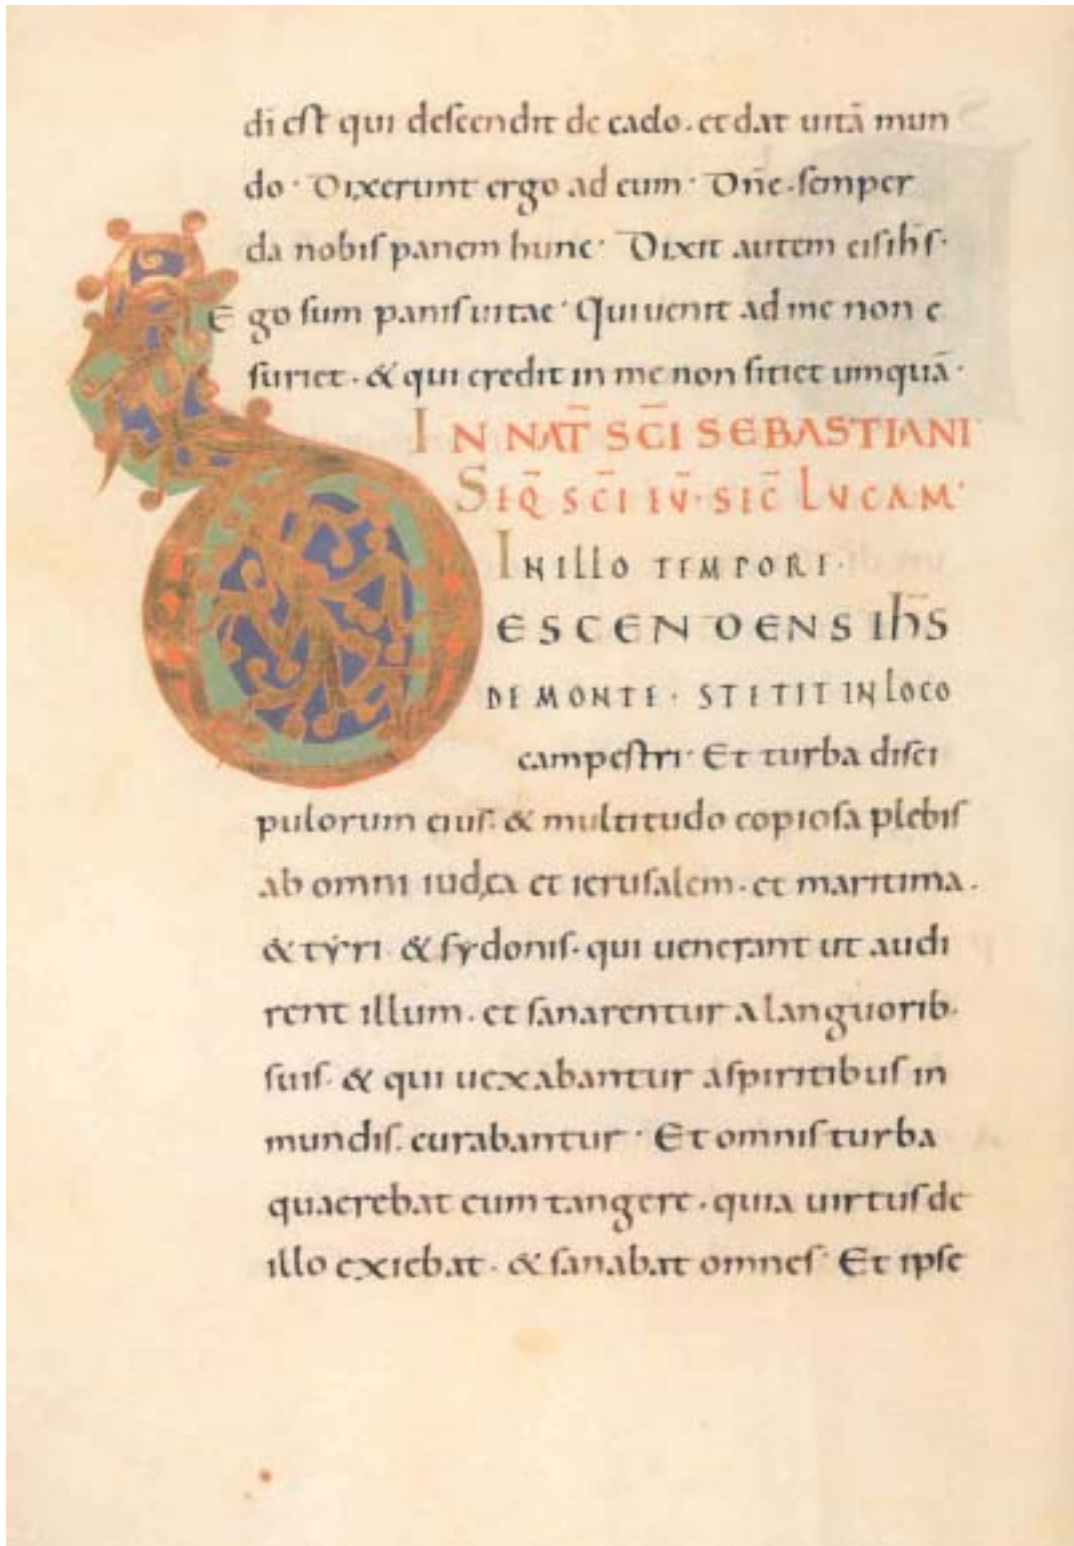 di est qui descendit de caelo. et dat uitā mun
do. Dixerunt ergo ad eum. Dn̄e. semper
da nobis panem hunc. Dixit autem eis ih̄s.
Ego sum panis uitae. Qui uenit ad me non e
suriet. & qui credit in me non sitiet umquā.
IN NAT̄ SC̄I SEBASTIANI
SEQ̄ SC̄I EV̄. SEC̄ LVCAM.
IN ILLO TEMPORE.
DESCENDENS IH̄S
DE MONTE. STETIT IN LOCO
campestri. Et turba disci
pulorum eius. & multitudo copiosa plebis
ab omni iudęa et ierusalem. et maritima.
& tẏri. & sẏdonis. qui uenerant ut audi
rent illum. et sanarentur a languorib.
suis. & qui uexabantur a spiritibus in
mundis. curabantur. Et omnis turba
quaerebat eum tangere. quia uirtus de
illo exiebat. & sanabat omnes. Et ipse